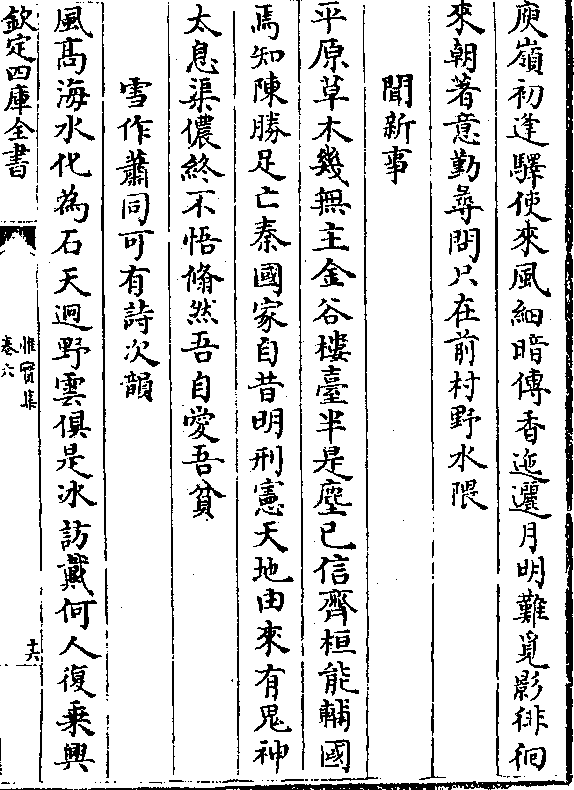 庾嶺初逢驛使來風細暗傳香迤邐月明難覓影徘徊
來朝著意勤尋問只在前村野水隈
聞新事
平原草木幾無主金谷樓臺半是塵已信齊桓能輔國
焉知陳勝足亡秦國家自昔明刑憲天地由來有鬼神
太息渠儂終不悟翛然吾自愛吾貧
雪作蕭同可有詩次韻
風髙海水化為石天迥野雲俱是冰訪戴何人復乗興
欽定四庫全書
惟實集
卷六
十六